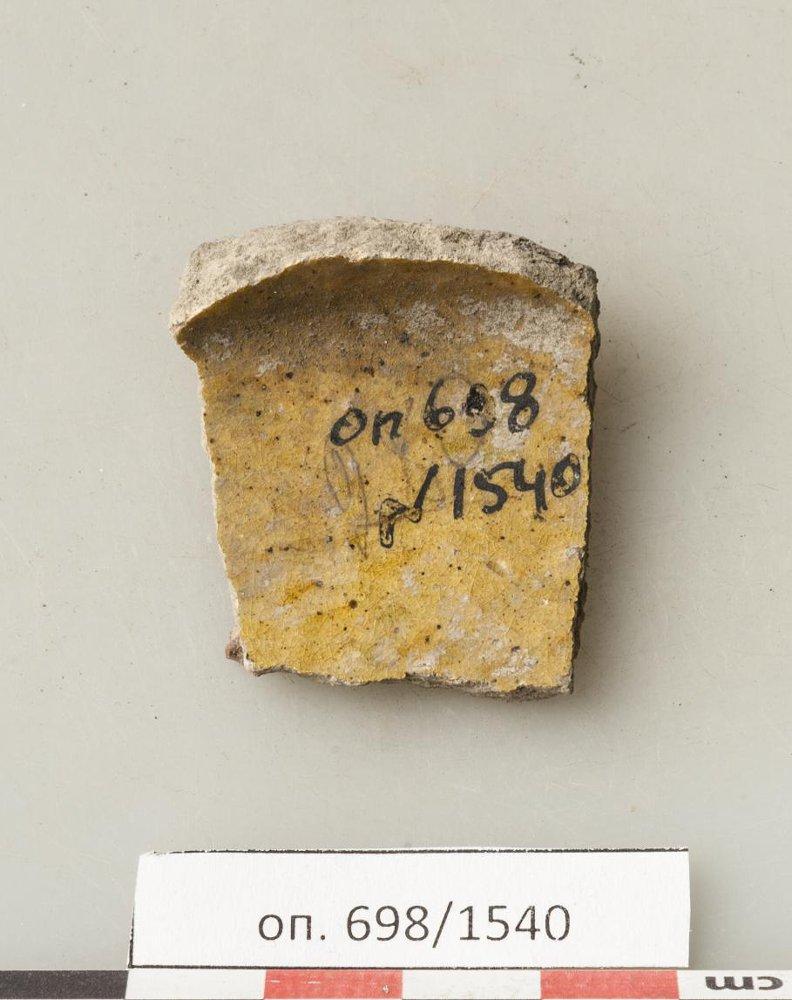 оп 698
/1540
оп. 698/1540
cm